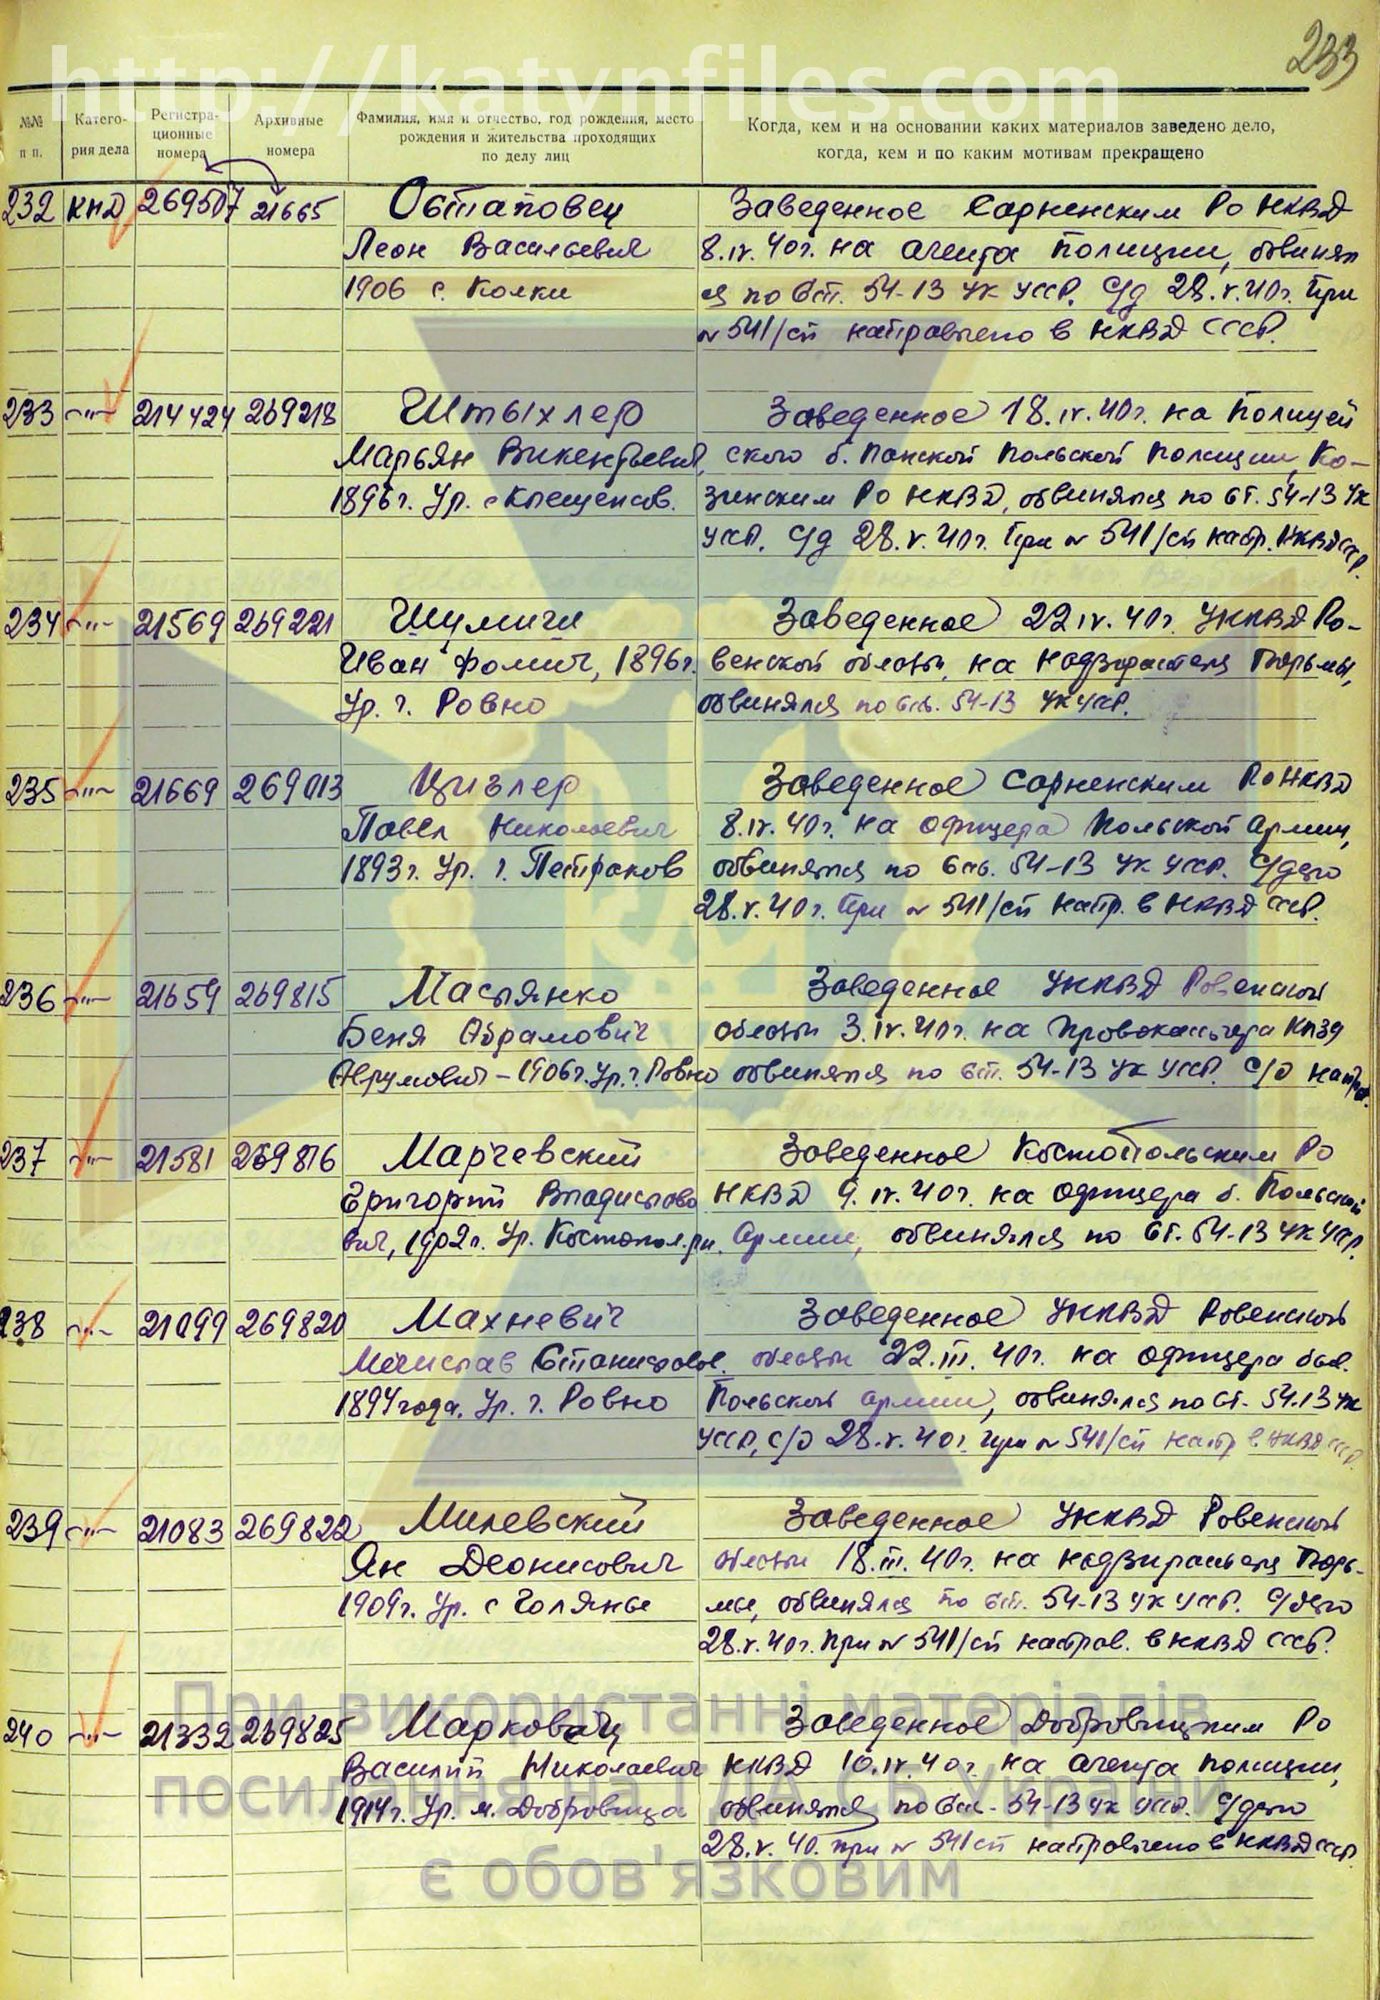 233
http://katynfiles.com
№№ п п.
Катего- рия дела
Регистра- ционные номера
Архивные номера
Фамилия, имя и отчество, год рождения, место рождения и жительства проходящих по делу лиц
Когда, кем и на основании каких материалов заведено дело, когда, кем и по каким мотивам прекращено
232 КНД 269507 21665 Остаповец Заведенное Сарненским Ро НКВД
Леон Васильевич 8.IV.40г. на агента полиции, обвинял
1906 с. Колки ся по Ст. 54-13 УК УССР. С/д 28.V.40г. При
№ 541/сп направлено в НКВД СССР.
233 -"- 214424 269218 Штыхлер Заведенное 18.IV.40г. на полицей
Марьян Викентьевич, ского б. панской польской полиции, Ко-
1896г. Ур. с Клещенсв. зинским Ро НКВД, обвинялся по ст. 54-13 УК
УССР. С/д 28.V.40г. При № 541/сп напр. НКВД СССР.
234 -"- 21569 269221 Шумига Заведенное 22.IV.40г. УНКВД Ро-
Иван Фомич, 1896г. венской области, на надзирателя Тюрьмы,
Ур. г. Ровно обвинялся по ст. 54-13 УК УССР.
235 -"- 21669 269013 Цизлер Заведенное Сарненским Ро НКВД
Павел Николаевич 8.IV.40г. на офицера польской армии,
1893г. Ур. г. Петраков обвинялся по Ст. 54-13 УК УССР. С/дело
28.V.40г. При № 541/сп напр. в НКВД СССР.
236 -"- 21659 269815 Маслянко Заведенное УНКВД Ровенской
Беня Абрамович области 3.IV.40г. на провокатора КПЗУ
Аврумович - 1906г. Ур. г. Ровно обвинялся по ст. 54-13 УК УССР. С/д направ.
237 -"- 21581 269816 Марчевский Заведенное Костопольским Ро
Григорий Владиславо НКВД 9.IV.40г. на офицера б. Польской
вич, 1902г. Ур. Костопол. рн. Армии, обвинялся по ст. 54-13 УК УССР.
238 -"- 21099 269820 Махневич Заведенное УНКВД Ровенской
Мечислав Станиславов. области 22.III.40г. на офицера быв.
1894 года. Ур. г. Ровно Польской армии, обвинялся по ст. 54-13 УК
УССР, С/д 28.V.40г. при № 541/сп напр в НКВД СССР.
239 -"- 21083 269822 Милевский Заведенное УНКВД Ровенской
Ян Деонисович области 18.III.40г. на надзирателя Тюрь-
1909г. Ур. с Голянье мы, обвинялся по ст. 54-13 УК УССР. С/дело
28.V.40г. при № 541/сп направ. в НКВД СССР.
240 -"- 21332 269825 Марковец Заведенное Домбровицким Ро
Василий Николаевич НКВД 10.IV.40г. на агента полиции,
1914г. Ур. м. Домбровица обвинялся по Ст. 54-13 УК УССР. С/дело
28.V.40. при № 541/сп направлено в НКВД СССР.
При використанні матеріалів
посилання на ДА СБ України
є обов'язковим